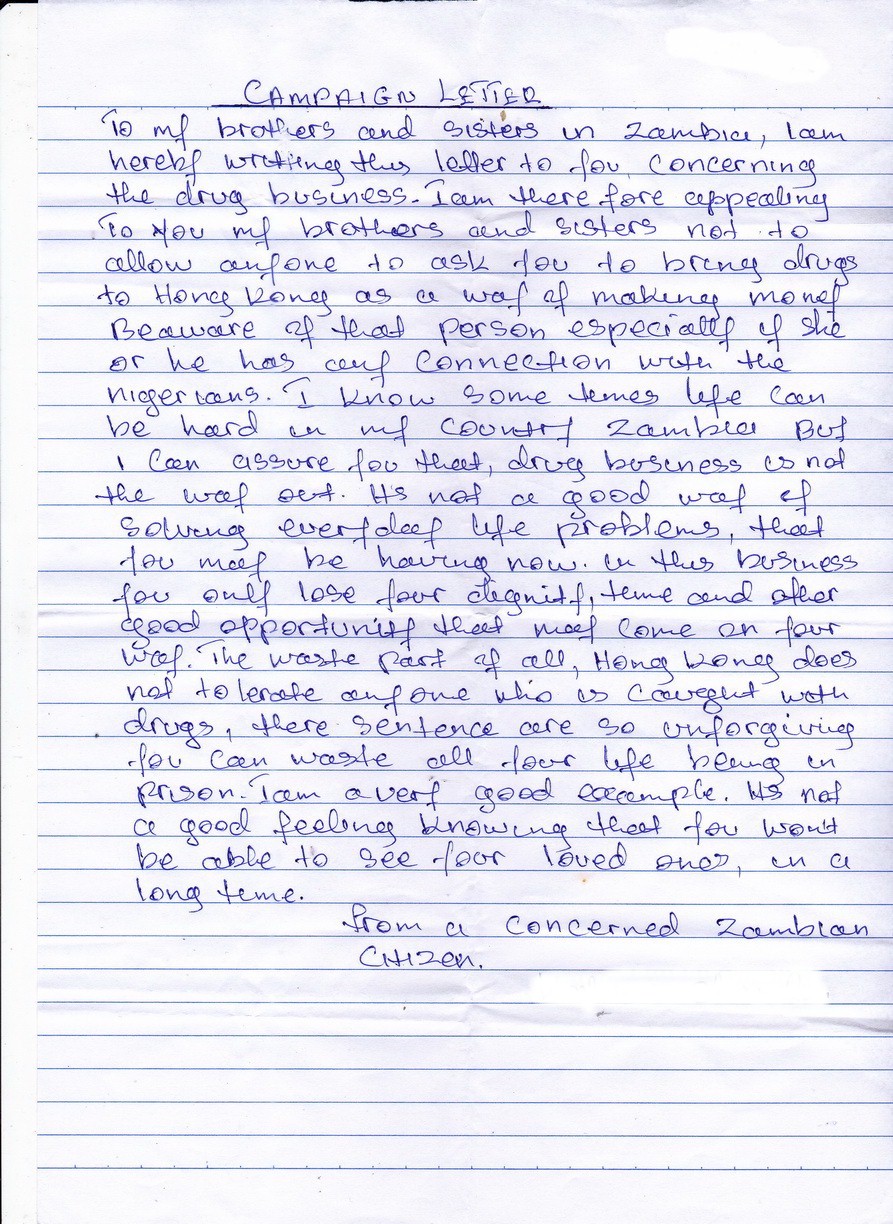 CAMPAIGN LETTER
To my brothers and sisters in Zambia, I am
hereby writting this letter to you concerning
the drug business. I am there fore appealing
To you my brothers and sisters not to
allow anyone to ask you to bring drugs
to Hong Kong as a way of making money
Beaware of that person especially if she
or he has any connection with the
nigerians. I know some times life can
be hard in my country Zambia But
I can assure you that, drug business is not
the way out. It's not a good way of
solving everyday life problems, that
you may be having now. in this business
you only lose your dignity, time and other
good opportunity that may come on your
way. The waste part of all, Hong Kong does
not tolerate anyone who is caught with
drugs, there sentence are so unforgiving
you can waste all your life being in
prison. I am a very good example. It's not
a good feeling knowing that you won't
be able to see your loved ones, in a
long time.
from a concerned Zambian
Citizen.